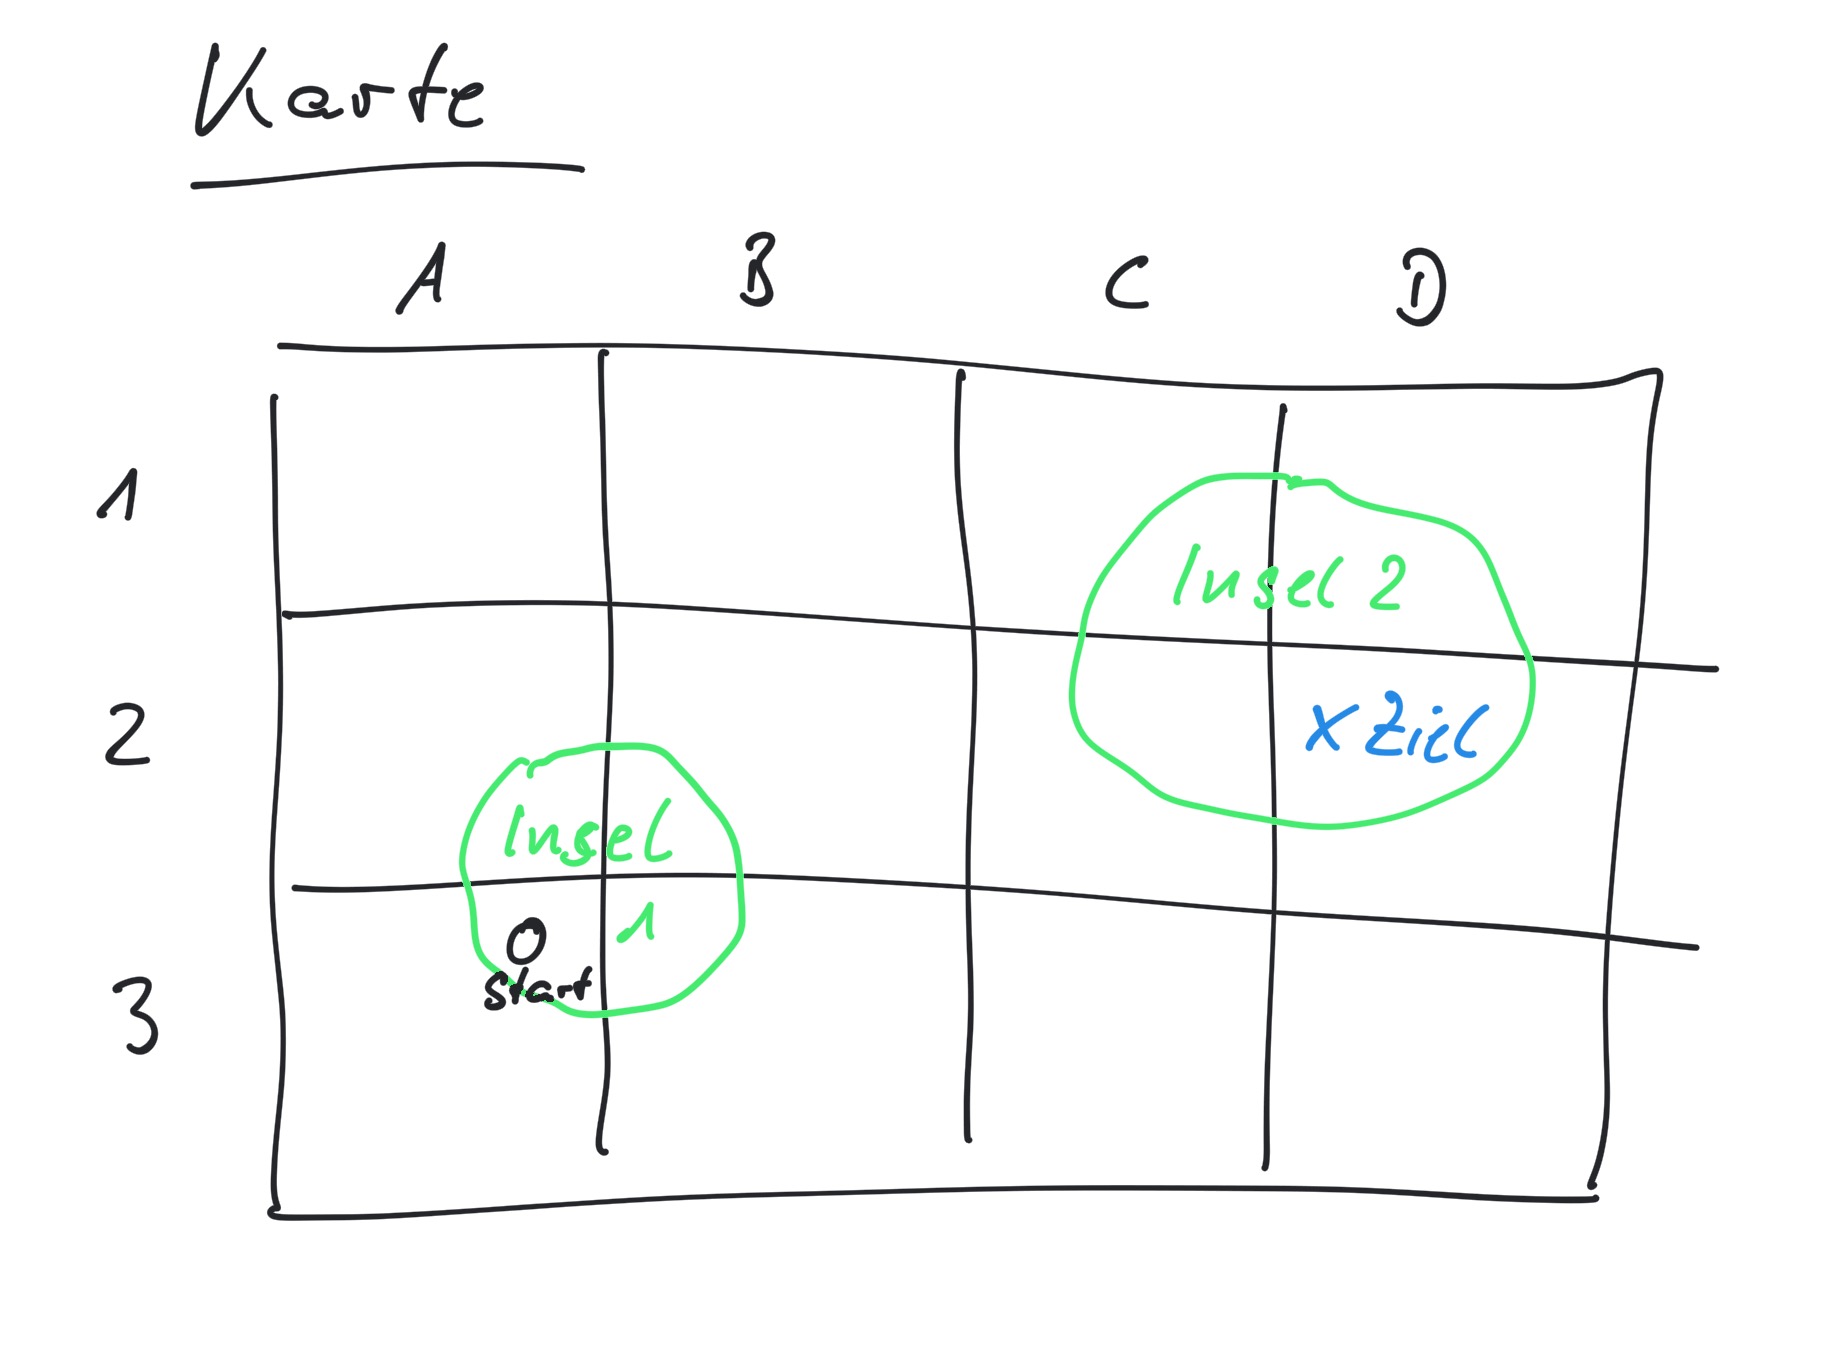 Karte
A B C D
1
Insel 2
2
X Ziel
Insel
1
O
Start
3